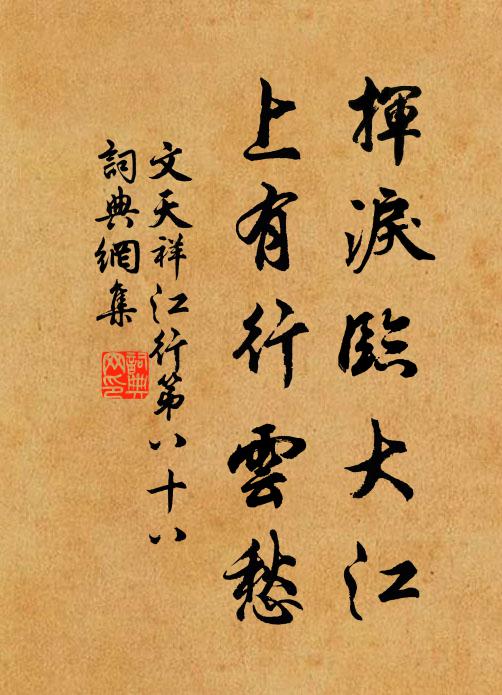 揮淚臨大江
上有行雲愁
文天祥江行第八十八
詞典網集
詞典網印